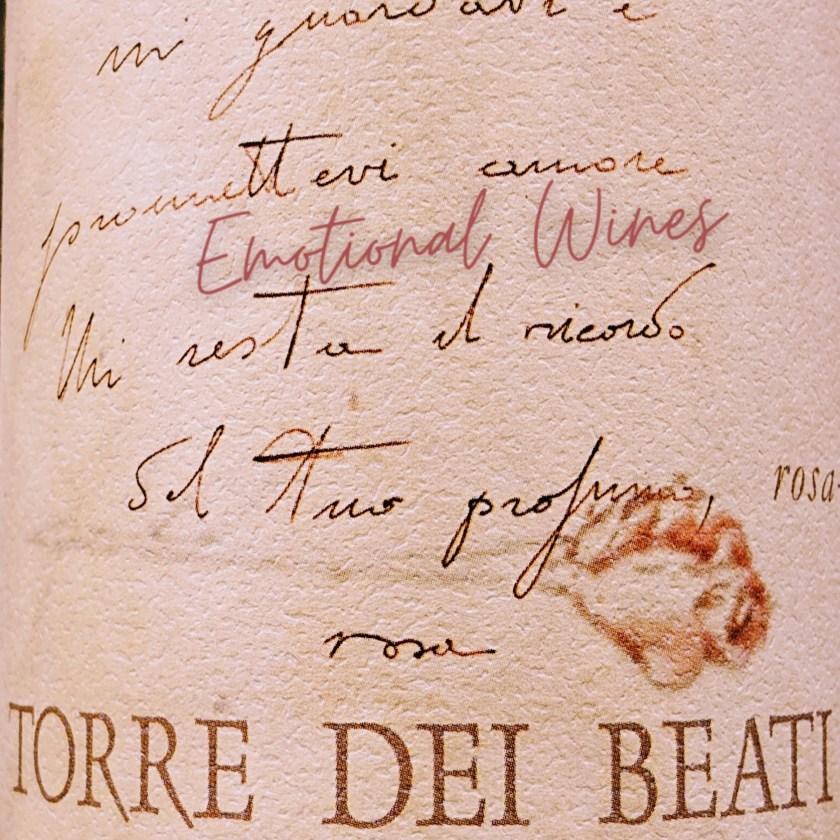 mi guardavi e
promettevi amore
Emotional Wines
Mi resta il ricordo
del tuo profumo,
rosa-
rosa
TORRE DEI BEATI